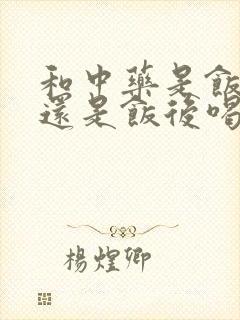 和中藥是飯
還是飯後喝
楊煌卿